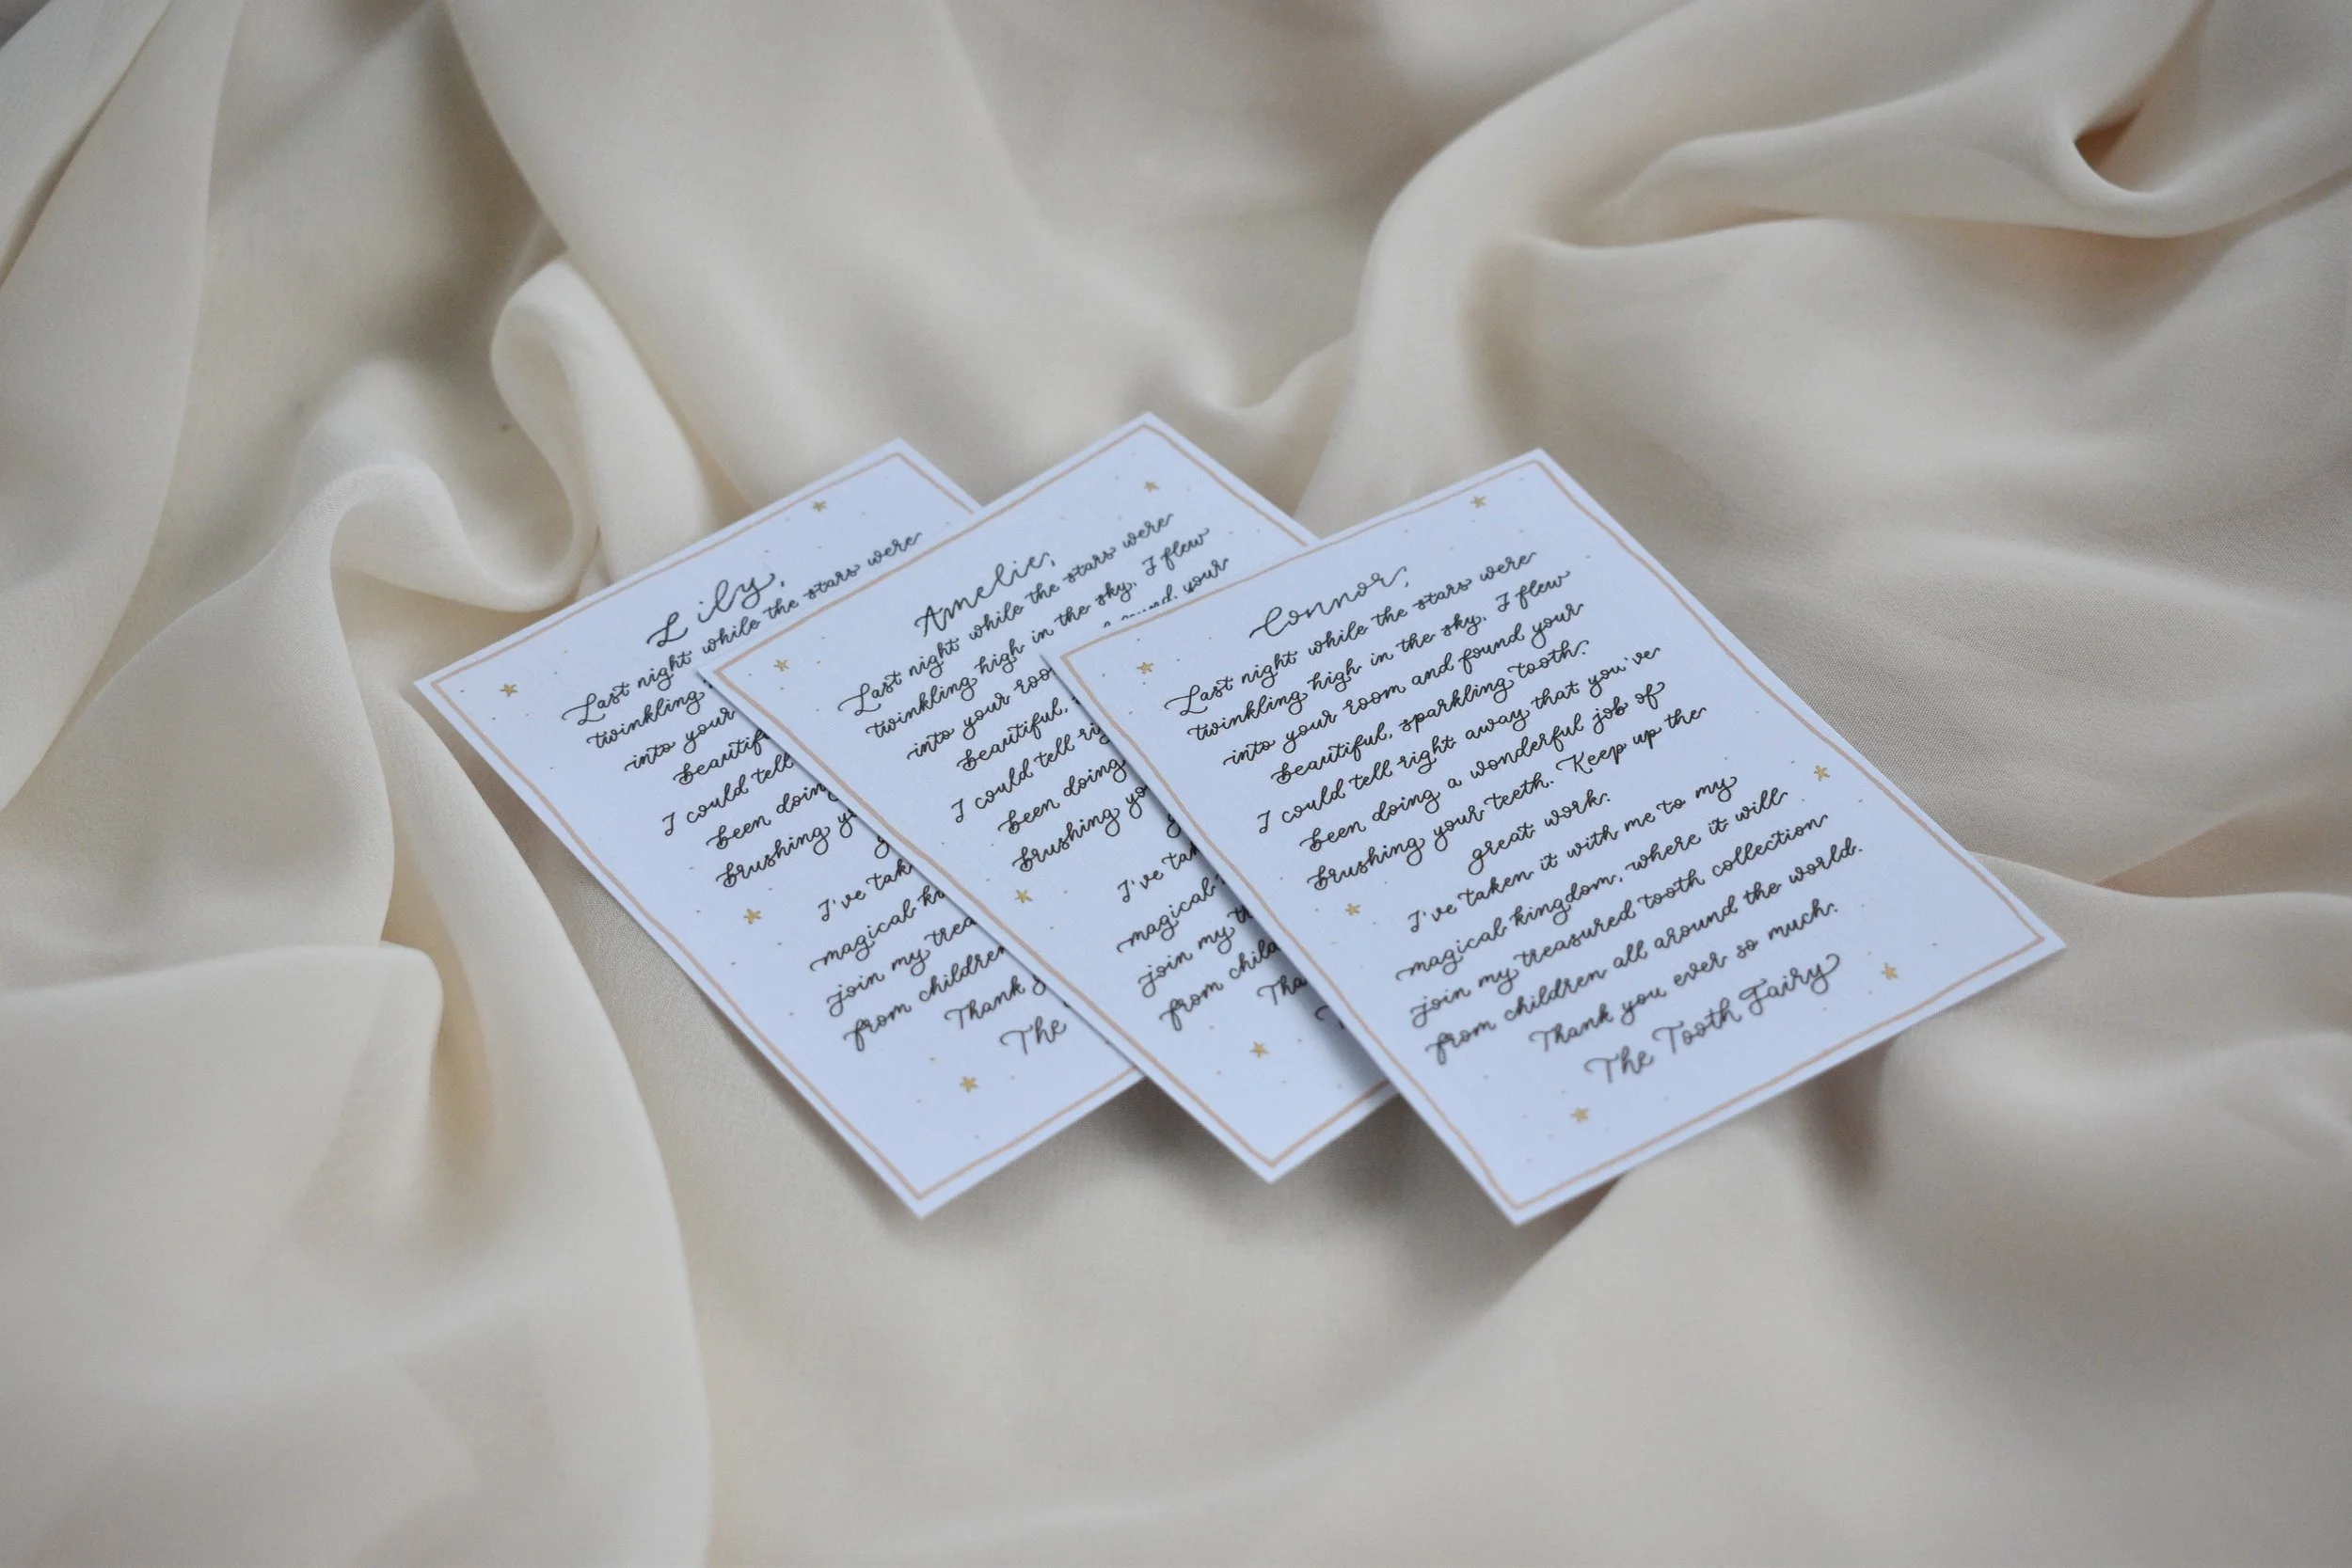 Lily,
Last night while the stars were
twinkling
into your
beautif
I could tell
been doin
brushing y
I've tak
magical k
join my trea
from children
Thank y
The
Amelie,
Last night while the stars were
twinkling high in the sky, I flew
into your roo your
beautiful,
I could tell ri
been doing
brushing yo
I've ta
magical
join my t
from child
Tha
Connor,
Last night while the stars were
twinkling high in the sky, I flew
into your room and found your
beautiful, sparkling tooth.
I could tell right away that you've
been doing a wonderful job of
brushing your teeth. Keep up the
great work.
I've taken it with me to my
magical kingdom, where it will
join my treasured tooth collection
from children all around the world.
Thank you ever so much.
The Tooth Fairy